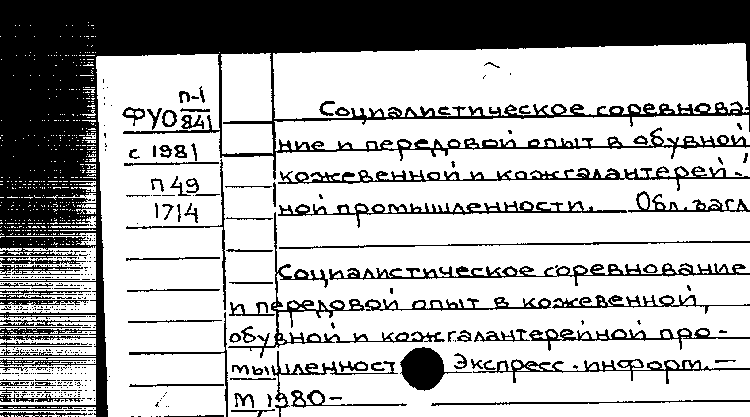 п-1
ФУО 841
с 1981
п 49
1714
Социалистическое соревнова-
ние и передовой опыт в обувной
кожевенной и кожгалантерей-
ной промышленности. Обл. загл
Социалистическое соревнование
и передовой опыт в кожевенной,
обувной и кожгалантерейной про-
мышленност Экспресс-информ. —
М, 1980-